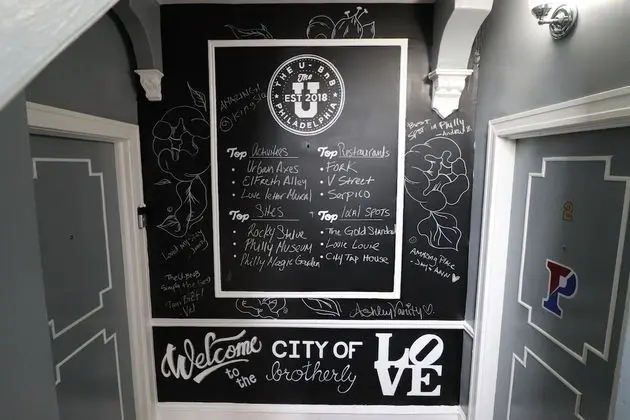 THE U-BNB
The
U
EST 2018
PHILADELPHIA
AMAZING!
Top Activities
Urban Axes
Elfreth Alley
Love letter Mural
Top Restaurants
FORK
V Street
Serpico
Top Sites
Rocky Statue
Philly Museum
Philly Magic Garden
Top local SPOTS
The Gold Standard
Louie Louie
City Tap House
BEST SPOT in Philly
AMAZING PLACE
- Jay & Ann
Loved
The U-BNB
Simply the Best
Ashley Vanity
2
P
Welcome to the
CITY OF
brotherly
LOVE